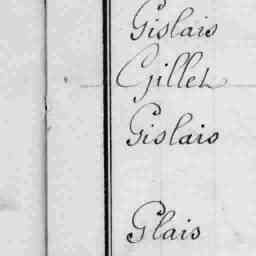 Gislais
Gillet
Gislais
Glais